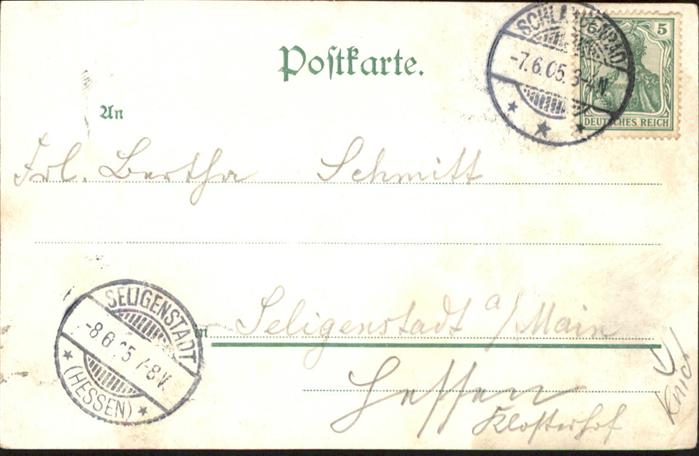 SCHLANGENBAD
5
-7.6.05. 3-4.N.
DEUTSCHES REICH
Postkarte.
An
Frl. Bertha Schmitt
SELIGENSTADT
-8.6.05. 7-8V.
(HESSEN)
in Seligenstadt a/Main
Hessen
Klosterhof